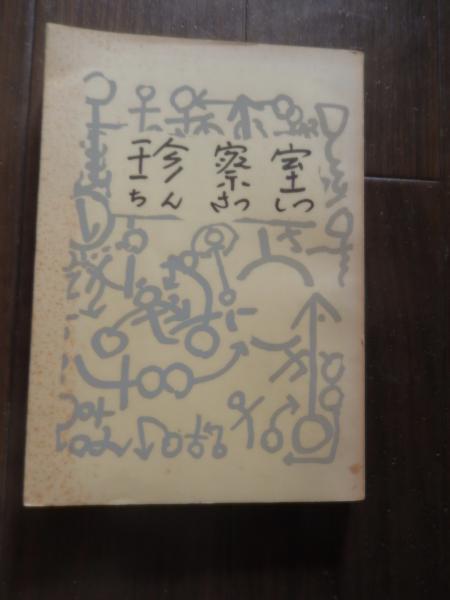 珍察室
ちんさつしつ